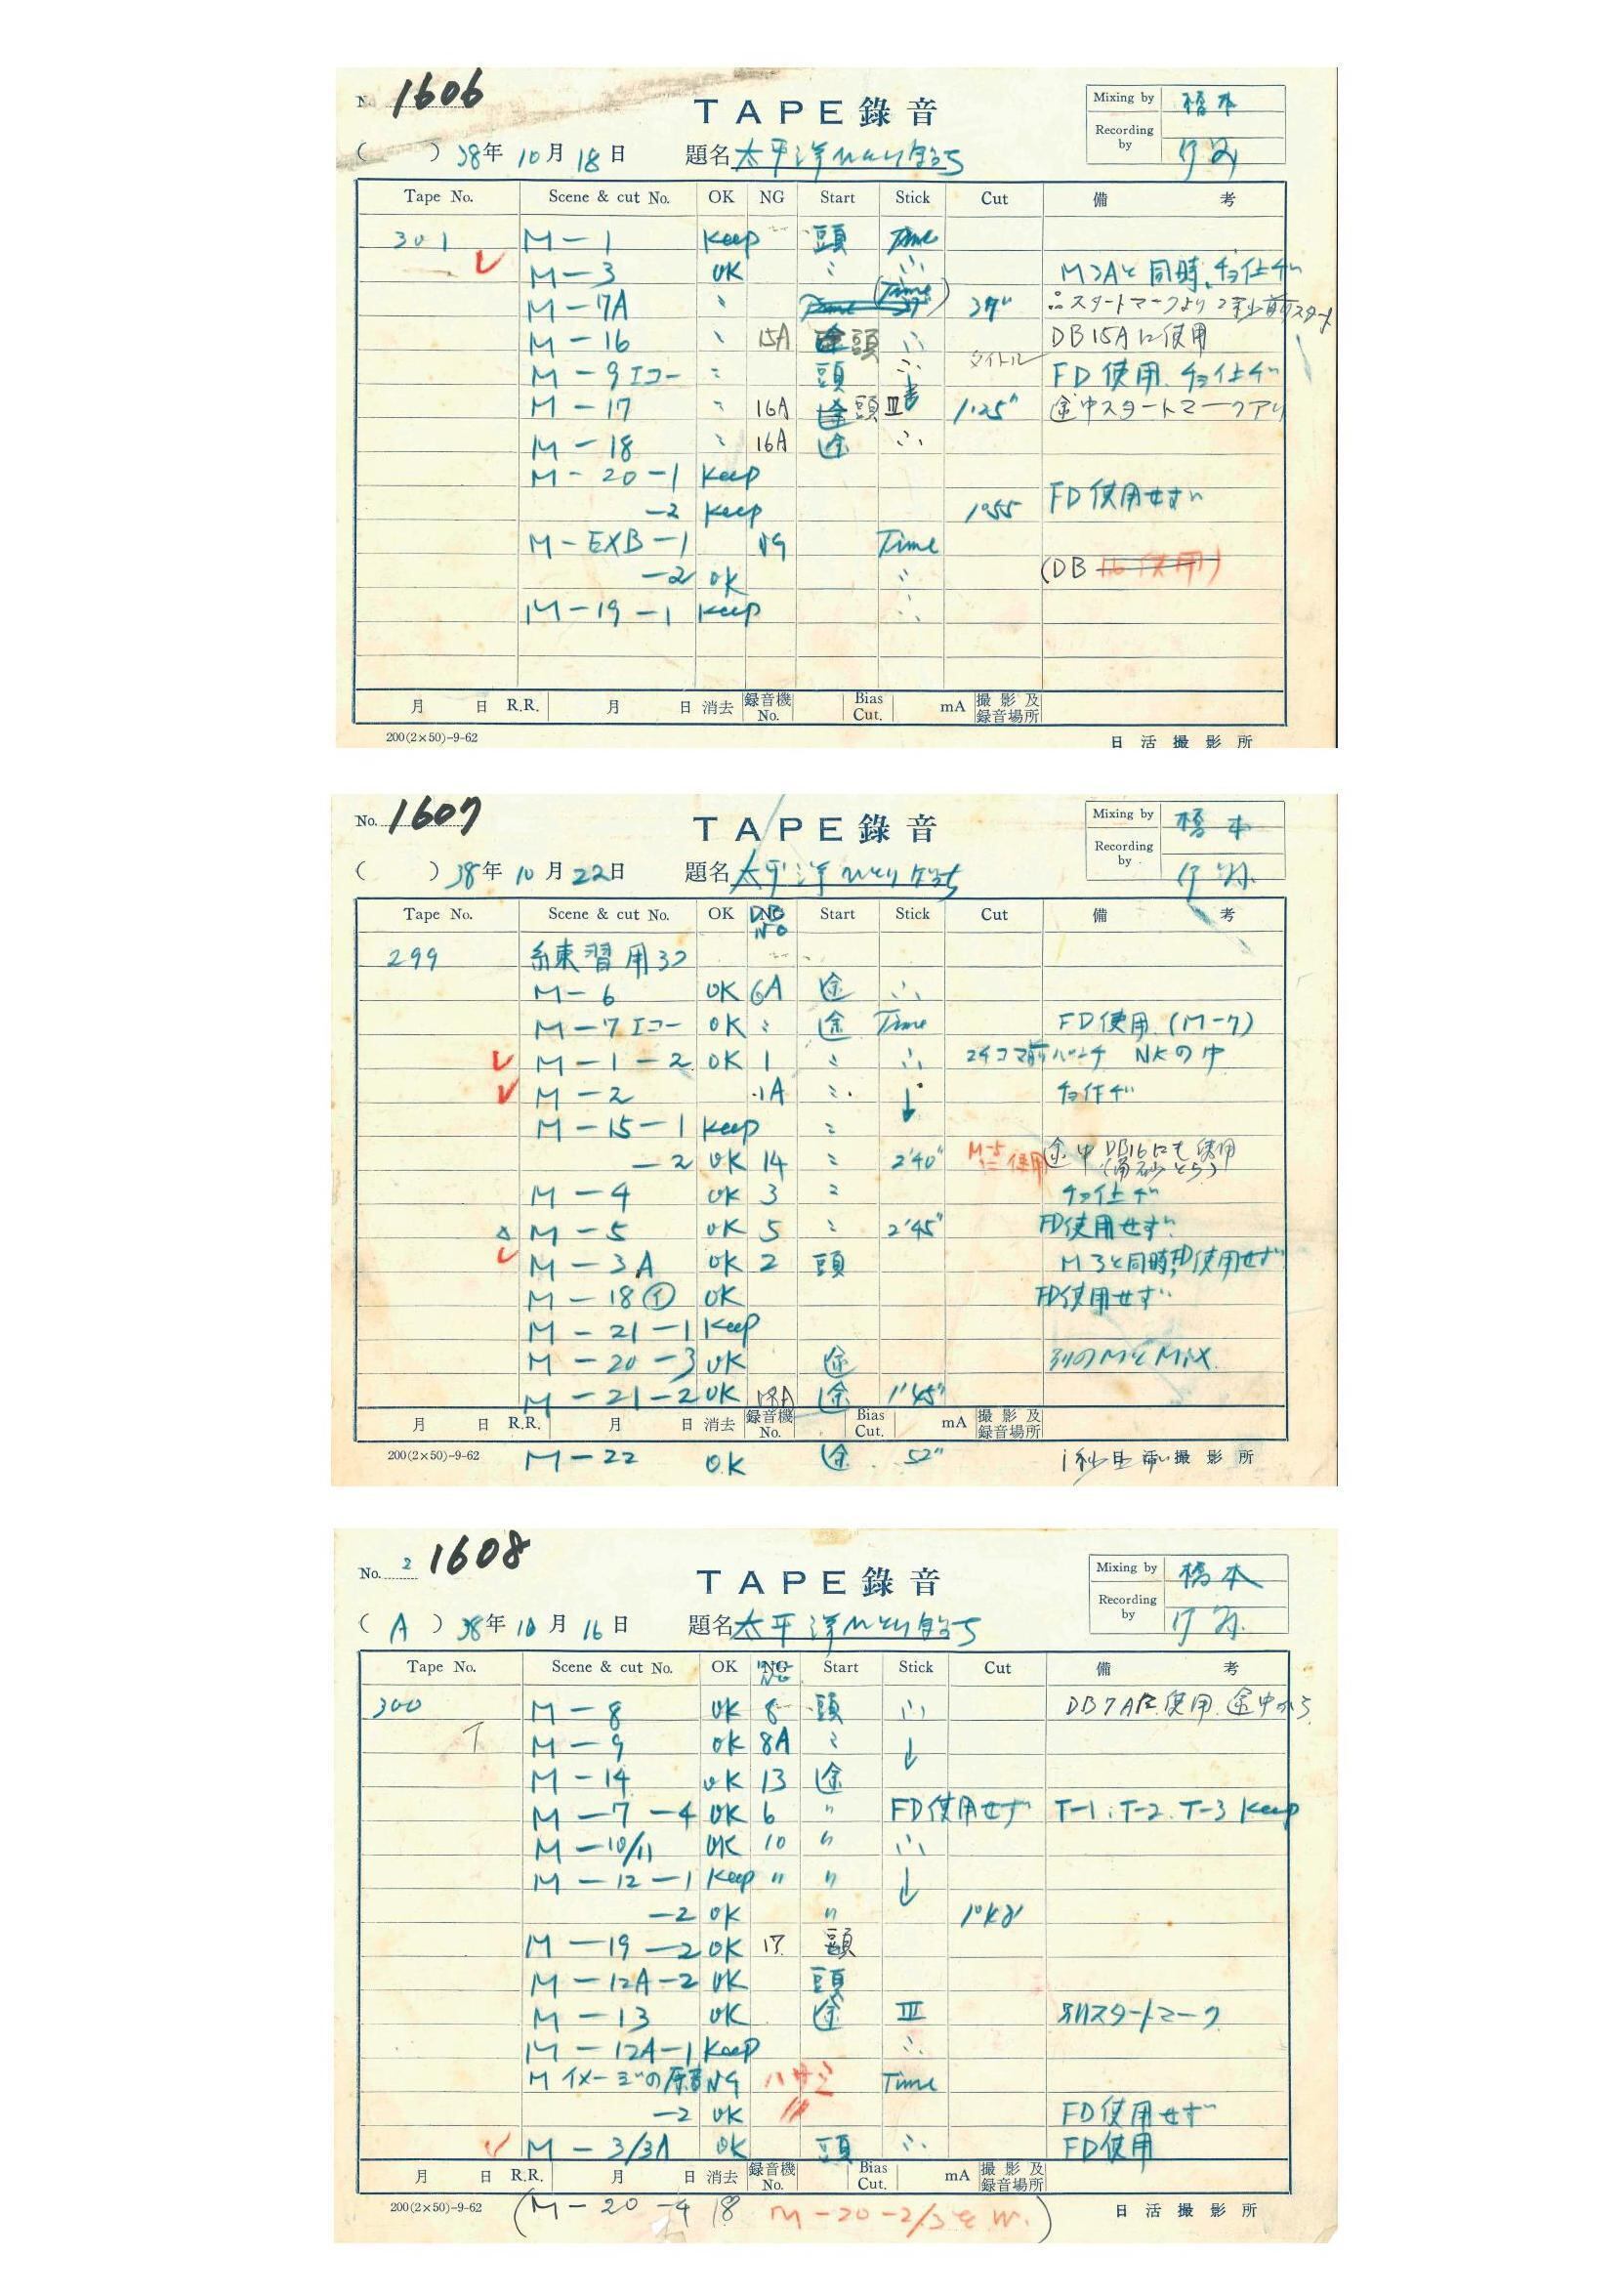 No. 1606
TAPE 錄音
Mixing by 橋本
Recording by
( ) 38年 10月 18日 題名 太平洋ひとりぼっち
Tape No. Scene & cut No. OK NG Start Stick Cut 備考
301 M-1 Keep 頭 Time
M-3 OK 〃 〃 M3Aと同時、チョイ上げ
M-7A 〃 (Time) 37" スタートマークより2秒前スタート
M-16 〃 15A 頭 〃 DB15Aに使用
M-9エコー 〃 頭 〃 タイトル FD使用、チョイ上げ
M-17 〃 16A 頭 III 1'25" 途中スタートマークアリ
M-18 〃 16A 途 〃
M-20-1 Keep
-2 Keep 1'55 FD使用せず
M-EXB-1 NG Time
-2 OK 〃 (DB 16使用)
M-19-1 Keep 〃
月 日 R.R. 月 日 消去 録音機No. Bias Cut. mA 撮影及録音場所
200(2×50)-9-62 日活撮影所
No. 1607
TAPE 錄音
Mixing by 橋本
Recording by
( ) 38年 10月 22日 題名 太平洋ひとりぼっち
Tape No. Scene & cut No. OK DB No Start Stick Cut 備考
299 練習用32
M-6 OK 6A 途 〃
M-7エコー OK 〃 途 Time FD使用(M-7)
M-1-2 OK 1 〃 〃 24コマ前パンチ NKの中
M-2 1A 〃 ↓ チョイ上げ
M-15-1 Keep 〃
-2 OK 14 〃 2'40" M-5に使用 途中DB16にも使用
M-4 OK 3 〃 チョイ上げ
△ M-5 OK 5 〃 2'45" FD使用せず
M-3A OK 2 頭 M3と同時、FD使用せず
M-18① OK FD使用せず
M-21-1 Keep
M-20-3 OK 途 別のMとMIX
M-21-2 OK 18A 途 1'45"
月 日 R.R. 月 日 消去 録音機No. Bias Cut. mA 撮影及録音場所
200(2×50)-9-62 M-22 OK 途 52" 日活撮影所
No. 2 1608
TAPE 錄音
Mixing by 橋本
Recording by
( A ) 38年 10月 16日 題名 太平洋ひとりぼっち
Tape No. Scene & cut No. OK NG Start Stick Cut 備考
300 M-8 OK 8 頭 〃 DB7Aに使用、途中から
T M-9 OK 8A 〃 ↓
M-14 OK 13 途
M-7-4 OK 6 〃 FD使用せず T-1、T-2、T-3 Keep
M-10/11 OK 10 〃 〃
M-12-1 Keep 〃 〃 ↓
-2 OK 〃
M-19-2 OK 17 頭
M-12A-2 OK 頭
M-13 OK 途 III 別スタートマーク
M-12A-1 Keep 〃
Mイメージの原音 NG ハサミ Time
-2 OK 〃 FD使用せず
M-3/3A OK 頭 〃 FD使用
月 日 R.R. 月 日 消去 録音機No. Bias Cut. mA 撮影及録音場所
200(2×50)-9-62 (M-20-4 18 M-20-2/3とW.) 日活撮影所